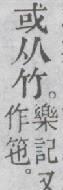 或从竹。樂記又
作箢。